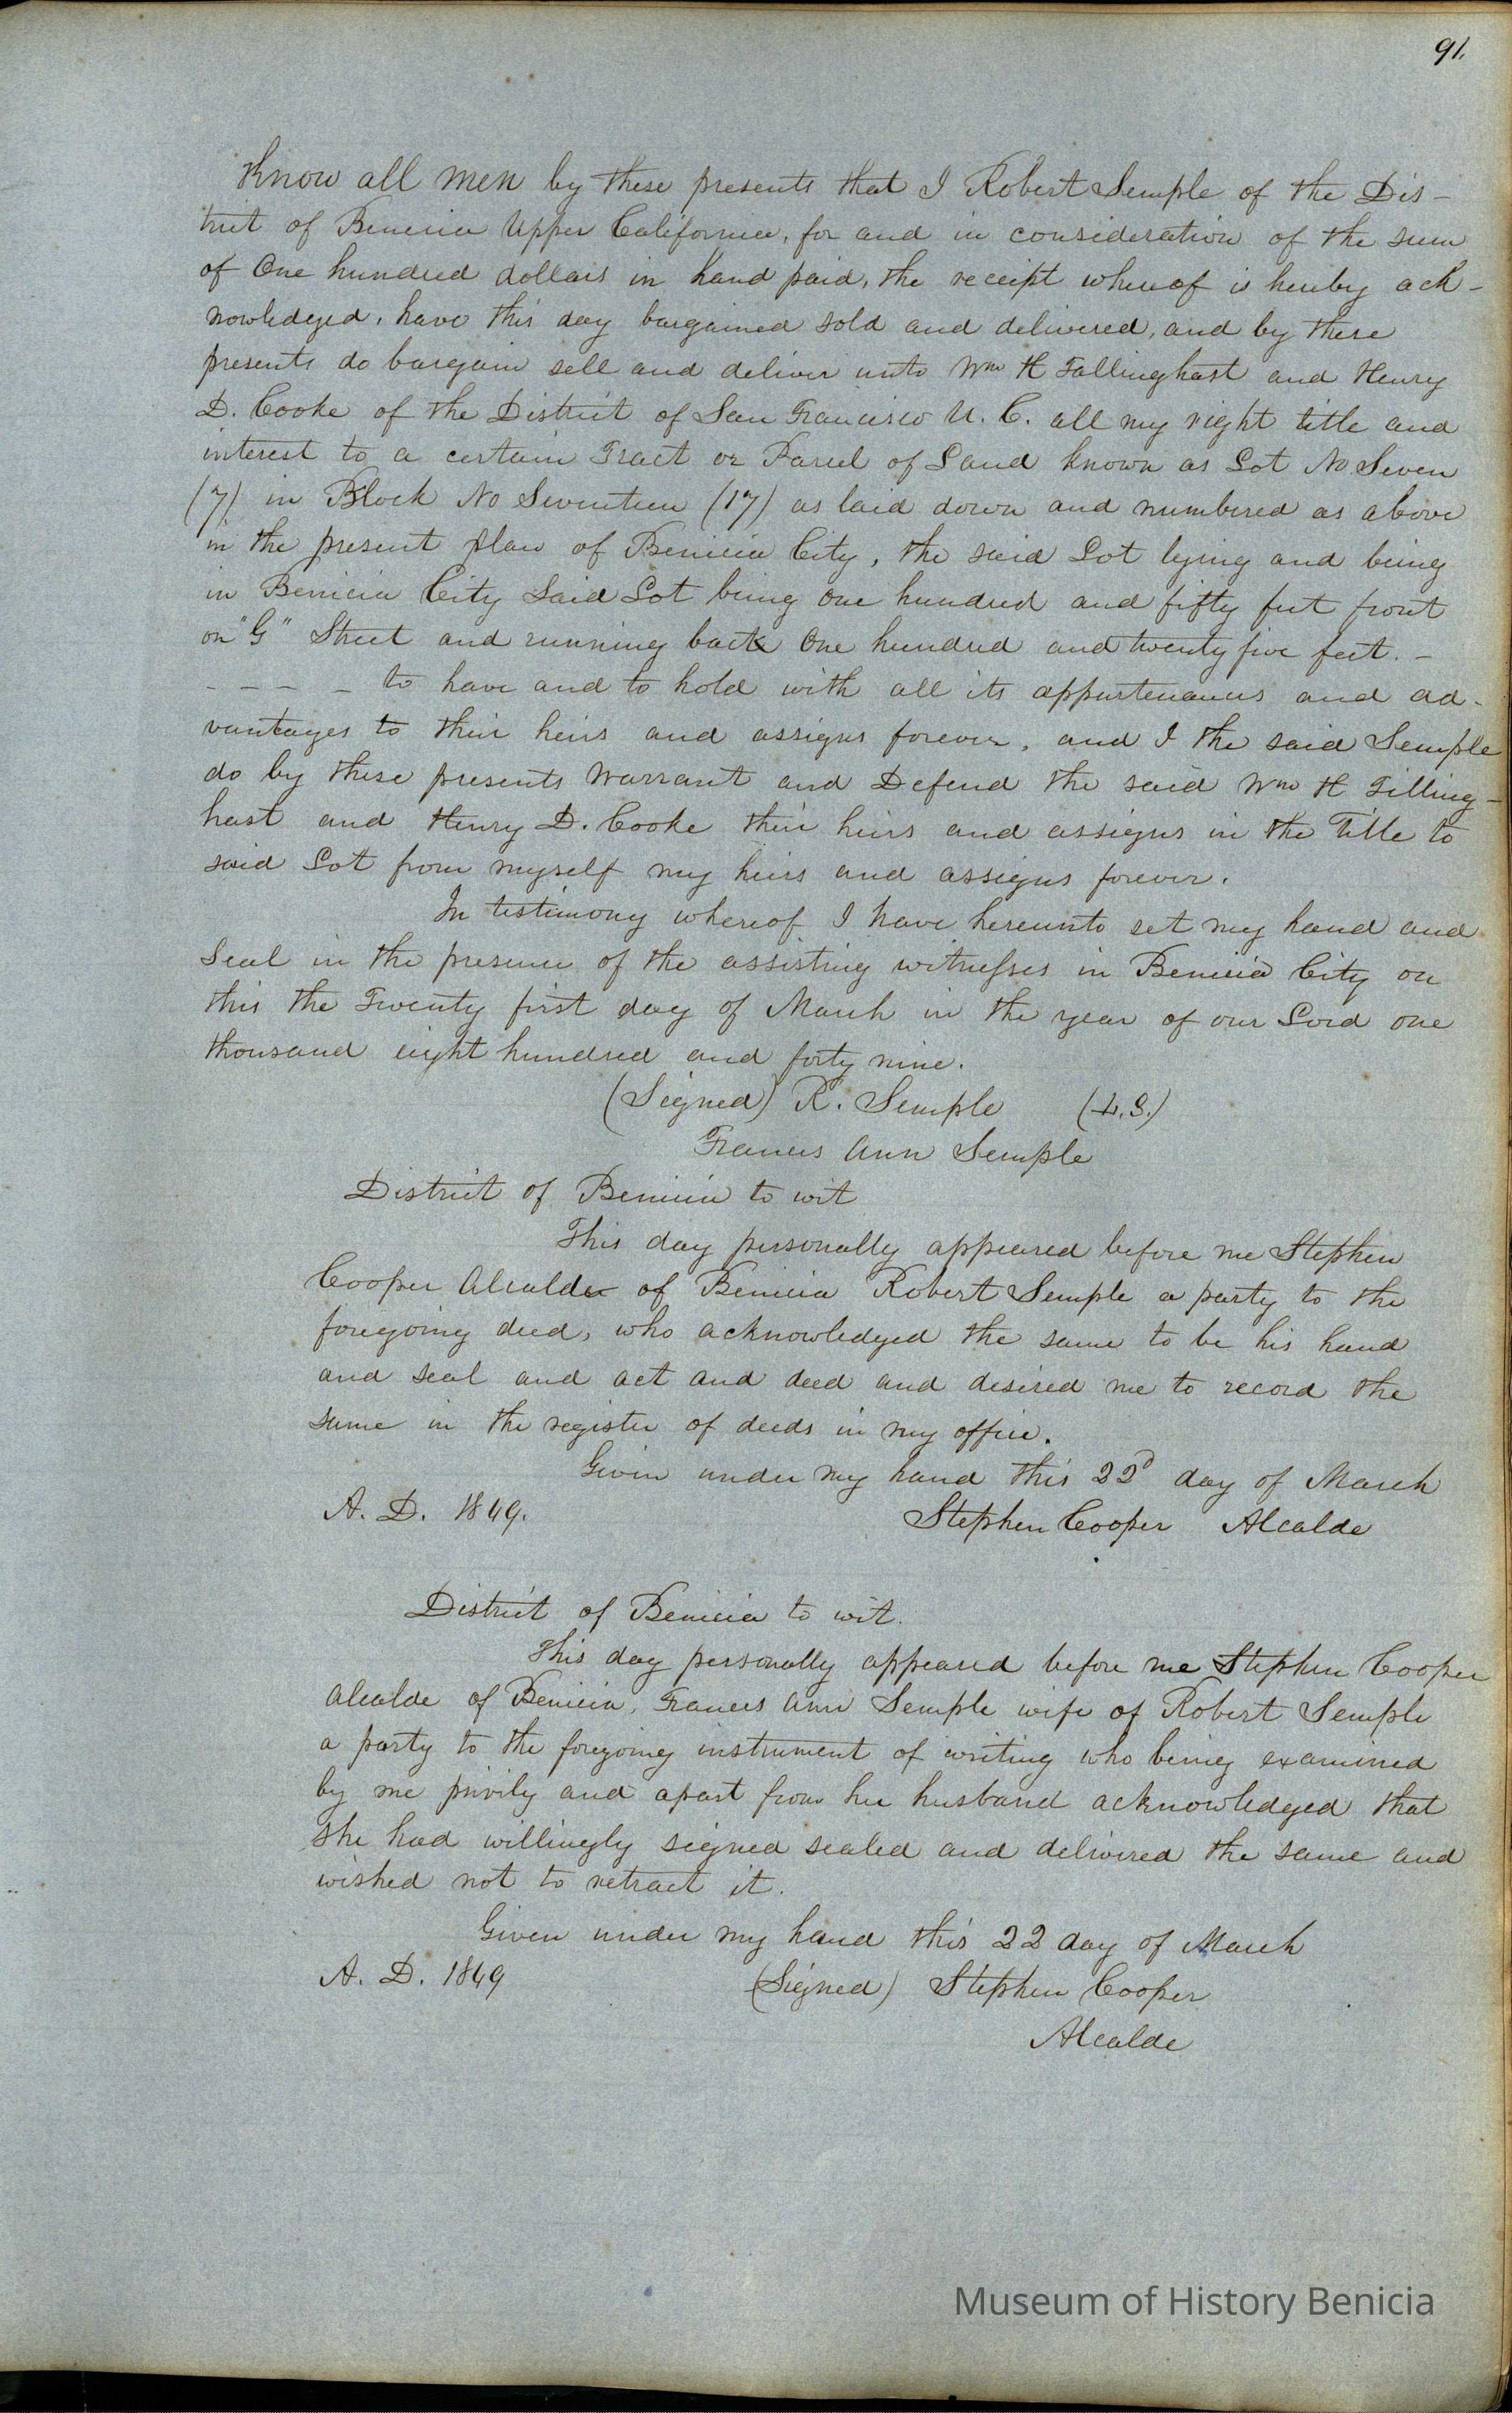 91.
Know all men by these presents that I Robert Semple of the Dis-
trict of Benicia Upper California, for and in consideration of the sum
of One hundred dollars in hand paid, the receipt whereof is hereby ack-
nowledged, have this day bargained sold and delivered, and by these
presents do bargain sell and deliver unto Wm H Tallinghast and Henry
D. Cooke of the District of San Francisco U. C. all my right title and
interest to a certain Tract or Parcel of Land known as Lot No Seven
(7) in Block No Seventeen (17) as laid down and numbered as above
in the present plan of Benicia City, the said Lot lying and being
in Benicia City Said Lot being One hundred and fifty feet front
on "G" Street and running back One hundred and twenty five feet. -
- - - - to have and to hold with all its appurtenances and ad-
vantages to their heirs and assigns forever, and I the said Semple
do by these presents Warrant and Defend the said Wm H Tilling-
hast and Henry D. Cooke their heirs and assigns in the Title to
said Lot from myself my heirs and assigns forever.
In testimony whereof I have hereunto set my hand and
Seal in the presence of the assisting witnesses in Benicia City on
this the Twenty first day of March in the year of our Lord one
thousand eight hundred and forty nine.
(Signed) R. Semple (L.S.)
Frances Ann Semple
District of Benicia to wit
This day personally appeared before me Stephen
Cooper Alcalde of Benicia Robert Semple a party to the
foregoing deed, who acknowledged the same to be his hand
and seal and act and deed and desired me to record the
same in the register of deeds in my office.
Given under my hand this 22d day of March
A. D. 1849. Stephen Cooper Alcalde
District of Benicia to wit.
This day personally appeared before me Stephen Cooper
Alcalde of Benicia, Frances Ann Semple wife of Robert Semple
a party to the foregoing instrument of writing who being examined
by me privily and apart from her husband acknowledged that
she had willingly signed sealed and delivered the same and
wished not to retract it.
Given under my hand this 22 day of March
A. D. 1849 (Signed) Stephen Cooper
Alcalde
Museum of History Benicia